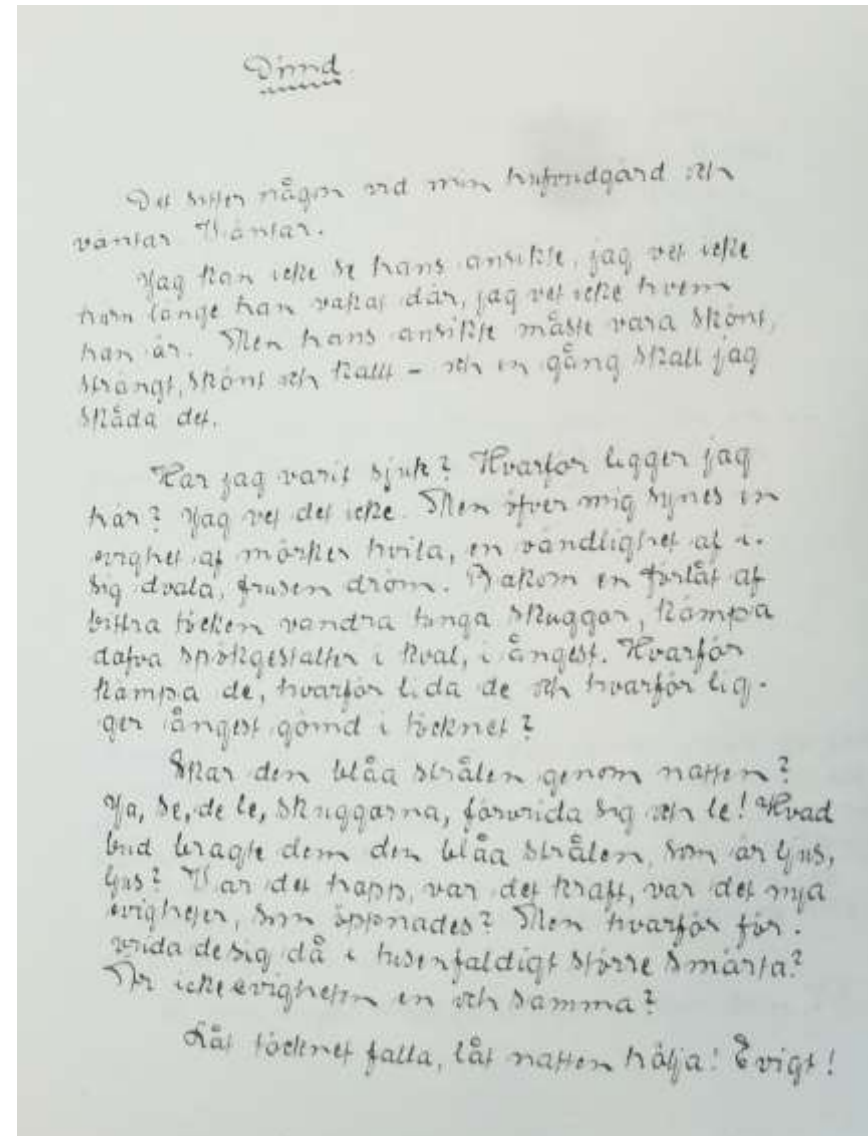 Dimd.
Det sitter någon vid min hufvudgärd och
väntar. Väntar.
Jag kan icke se hans ansikte, jag vet icke
huru länge han vakat där, jag vet icke hvem
han är. Men hans ansikte måste vara skönt,
strängt, skönt och kallt – och en gång skall jag
skåda det.
Har jag varit sjuk? Hvarför ligger jag
här? Jag vet det icke. Men öfver mig synes en
evighet af mörker hvila, en oändlighet af i
sig dvala, frusen dröm. Bakom en förlåt af
bittra töcken vandra tunga skuggor, kämpa
dofva spökgestalter i kval, i ångest. Hvarför
kämpa de, hvarför lida de och hvarför lig-
ger ångest gömd i töcknet?
Skar den blåa strålen genom natten?
Ja, se, de le, skuggorna, förvrida sig och le! Hvad
bud bragte dem den blåa strålen, som är ljus,
ljus? Var det hopp, var det kraft, var det nya
evigheter, som öppnades? Men hvarför för-
vrida de sig då i tusenfaldigt större smärta?
Är icke evigheten en och samma?
Låt töcknet falla, låt natten hölja! Evigt!